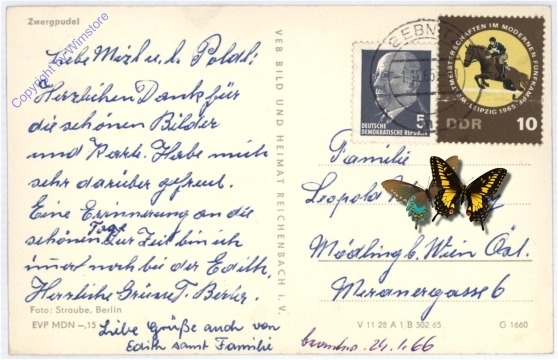 Zwergpudel
Copyright by Wimstore
Liebe Mizl u. l. Poldl!
Herzlichen Dank für
die schönen Bilder
und Karte. Habe mich
sehr darüber gefreut.
Eine Erinnerung an die
schönen Tage. Zur Zeit bin ich
immer noch bei der Edith.
Herzliche Grüsse T. Berta.
Foto: Straube, Berlin
EVP MDN -,15
Liebe Grüße auch von
Edith samt Familie
VEB BILD UND HEIMAT REICHENBACH I. V.
SEBN
5
DEUTSCHE
DEMOKRATISCHE REPUBLIK
WELTMEISTERSCHAFTEN IM MODERNEN FÜNFKAMPF
LEIPZIG 1965
DDR 10
Familie
Leopold
Mödling b. Wien Öst.
Meranergasse 6
V 11 28 A 1 B 502 65
G 1660
24.1.66